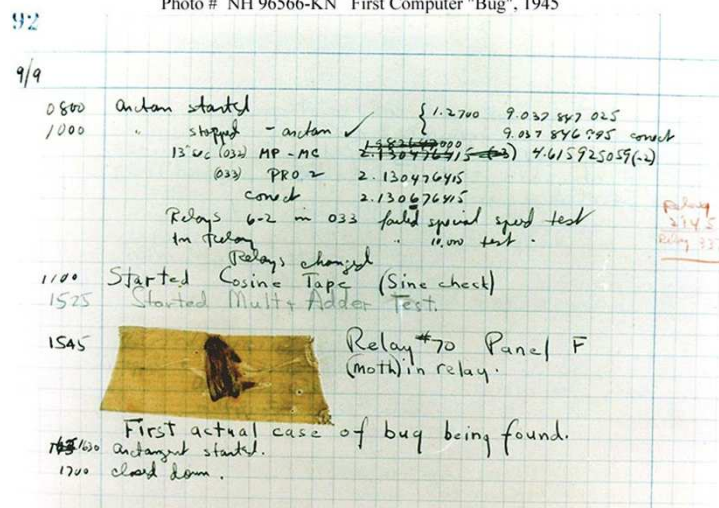 Photo # NH 96566-KN First Computer "Bug", 1945
92
9/9
0800 antan started { 1.2700 9.037 847 025
1000 " stopped - antan ✓ 9.037 846 995 conect
13"uc (032) MP - MC 2.130476415 4.615925059(-2)
(033) PRO 2 2.130476415
conect 2.130676415
Relays 6-2 in 033 failed special speed test
in Relay " 10.000 test .
Relays changed
Relay
2145
Relay 33
1100 Started Cosine Tape (Sine check)
1525 Started Mult+ Adder Test.
1545 Relay #70 Panel F
(moth) in relay.
First actual case of bug being found.
1630 antangent started.
1700 closed down.